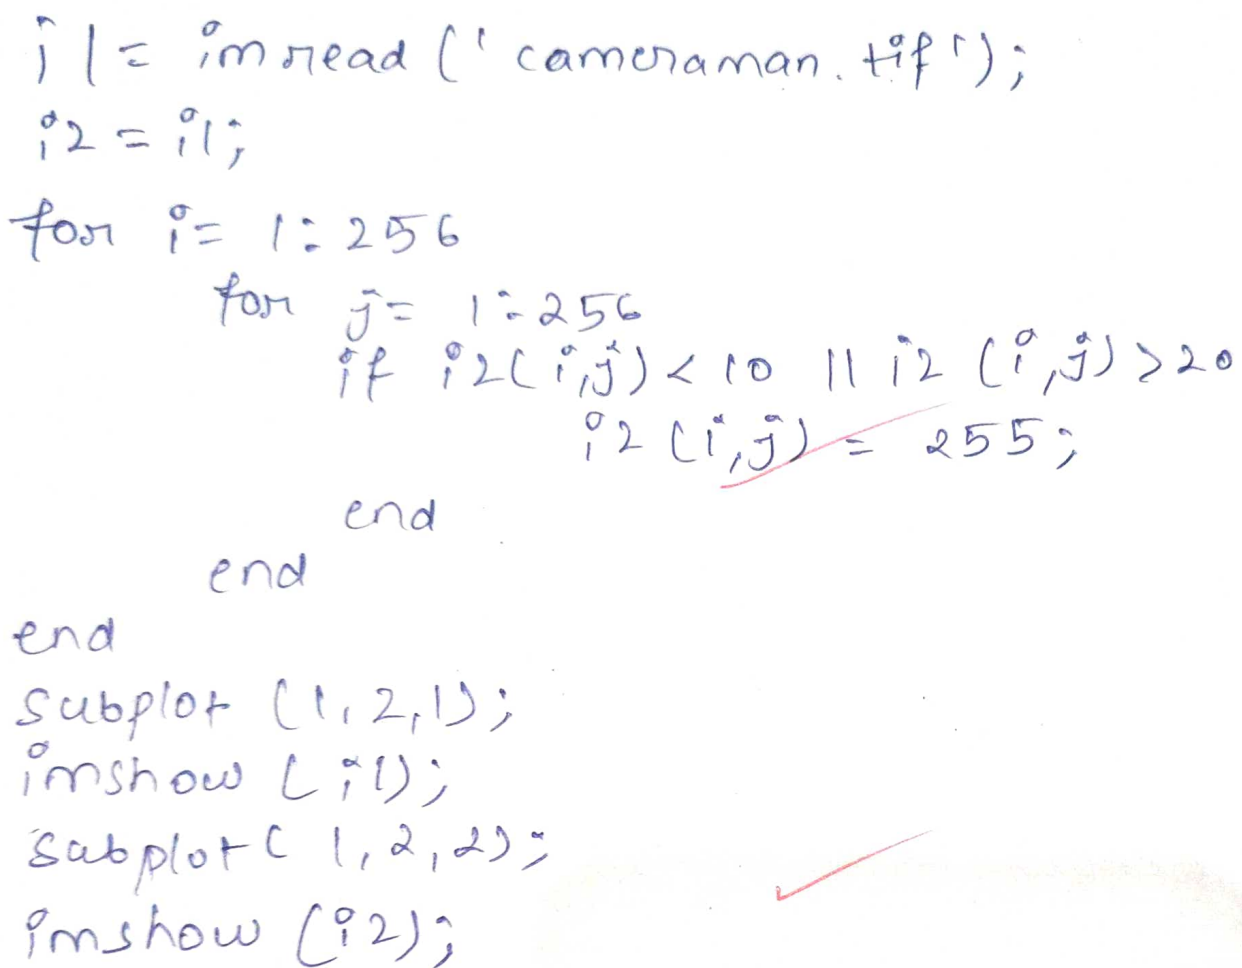 i1 = imread ('cameraman.tif');
i2 = i1;
for i = 1:256
for j = 1:256
if i2(i,j) < 10 || i2 (i,j) > 20
i2 (i,j) = 255;
end
end
end
subplot (1,2,1);
imshow (i1);
subplot ( 1,2,2);
imshow (i2);